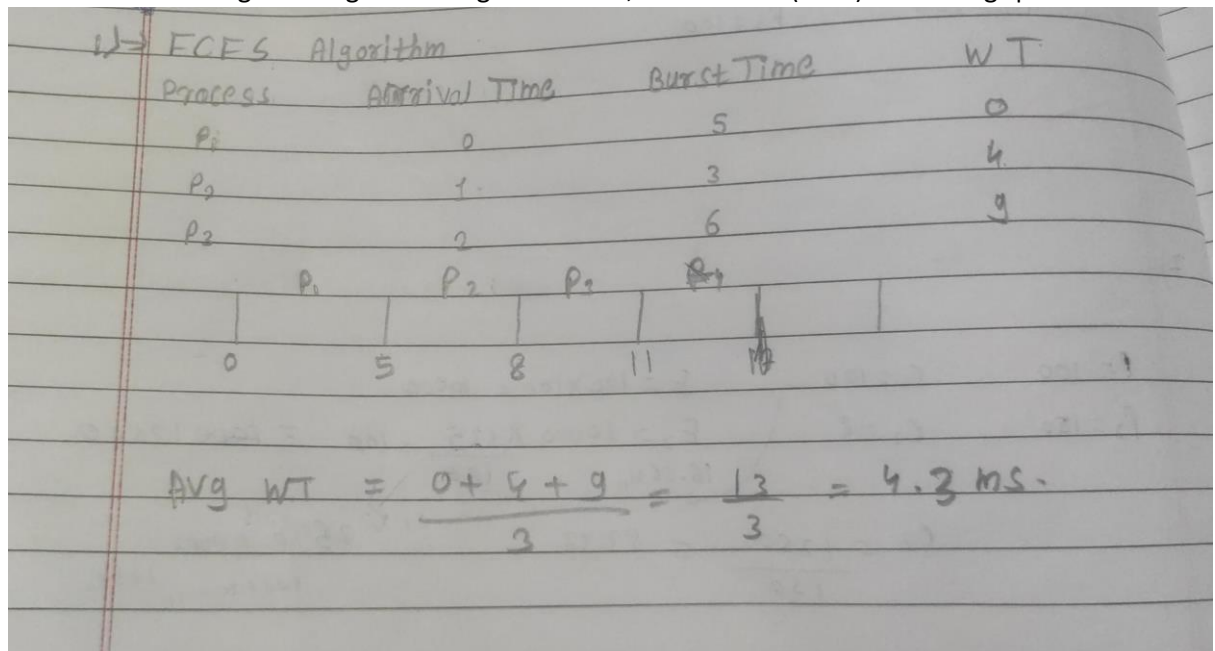 1)→ FCFS Algorithm
Process Arrival Time Burst Time WT
P1 0 5 0
P2 1 3 4
P3 2 6 9
P1 P2 P3
0 5 8 11
Avg WT = 0+4+9 / 3 = 13 / 3 = 4.3 ms.